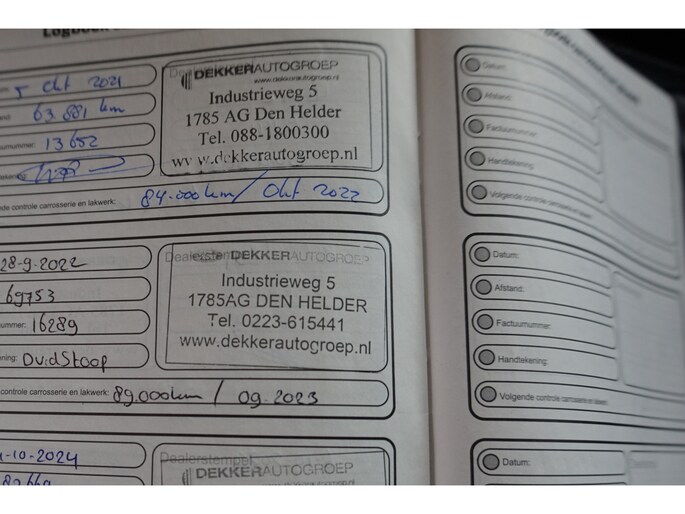 Logboek
5 okt 2021
63.881 km
13652
DEKKERAUTOGROEP
www.dekkerautogroep.nl
Industrieweg 5
1785 AG Den Helder
Tel. 088-1800300
www.dekkerautogroep.nl
de controle carrosserie en lakwerk: 84.000km/ Okt 2022
28-9-2022
69753
nummer: 16289
ening: DvidStoop
Dealerstempel DEKKERAUTOGROEP
Industrieweg 5
1785AG DEN HELDER
Tel. 0223-615441
www.dekkerautogroep.nl
controle carrosserie en lakwerk: 89.000km / 09-2023
-10-2024
Dealerstempel
DEKKERAUTOGROEP
www.dekkerautogroep.nl
Datum:
Afstand:
Factuurnummer:
Handtekening:
Volgende controle carrosserie en lakwerk:
Datum:
Afstand:
Factuurnummer:
Handtekening:
Volgende controle carrosserie en lakwerk:
Datum:
Dealerstempel